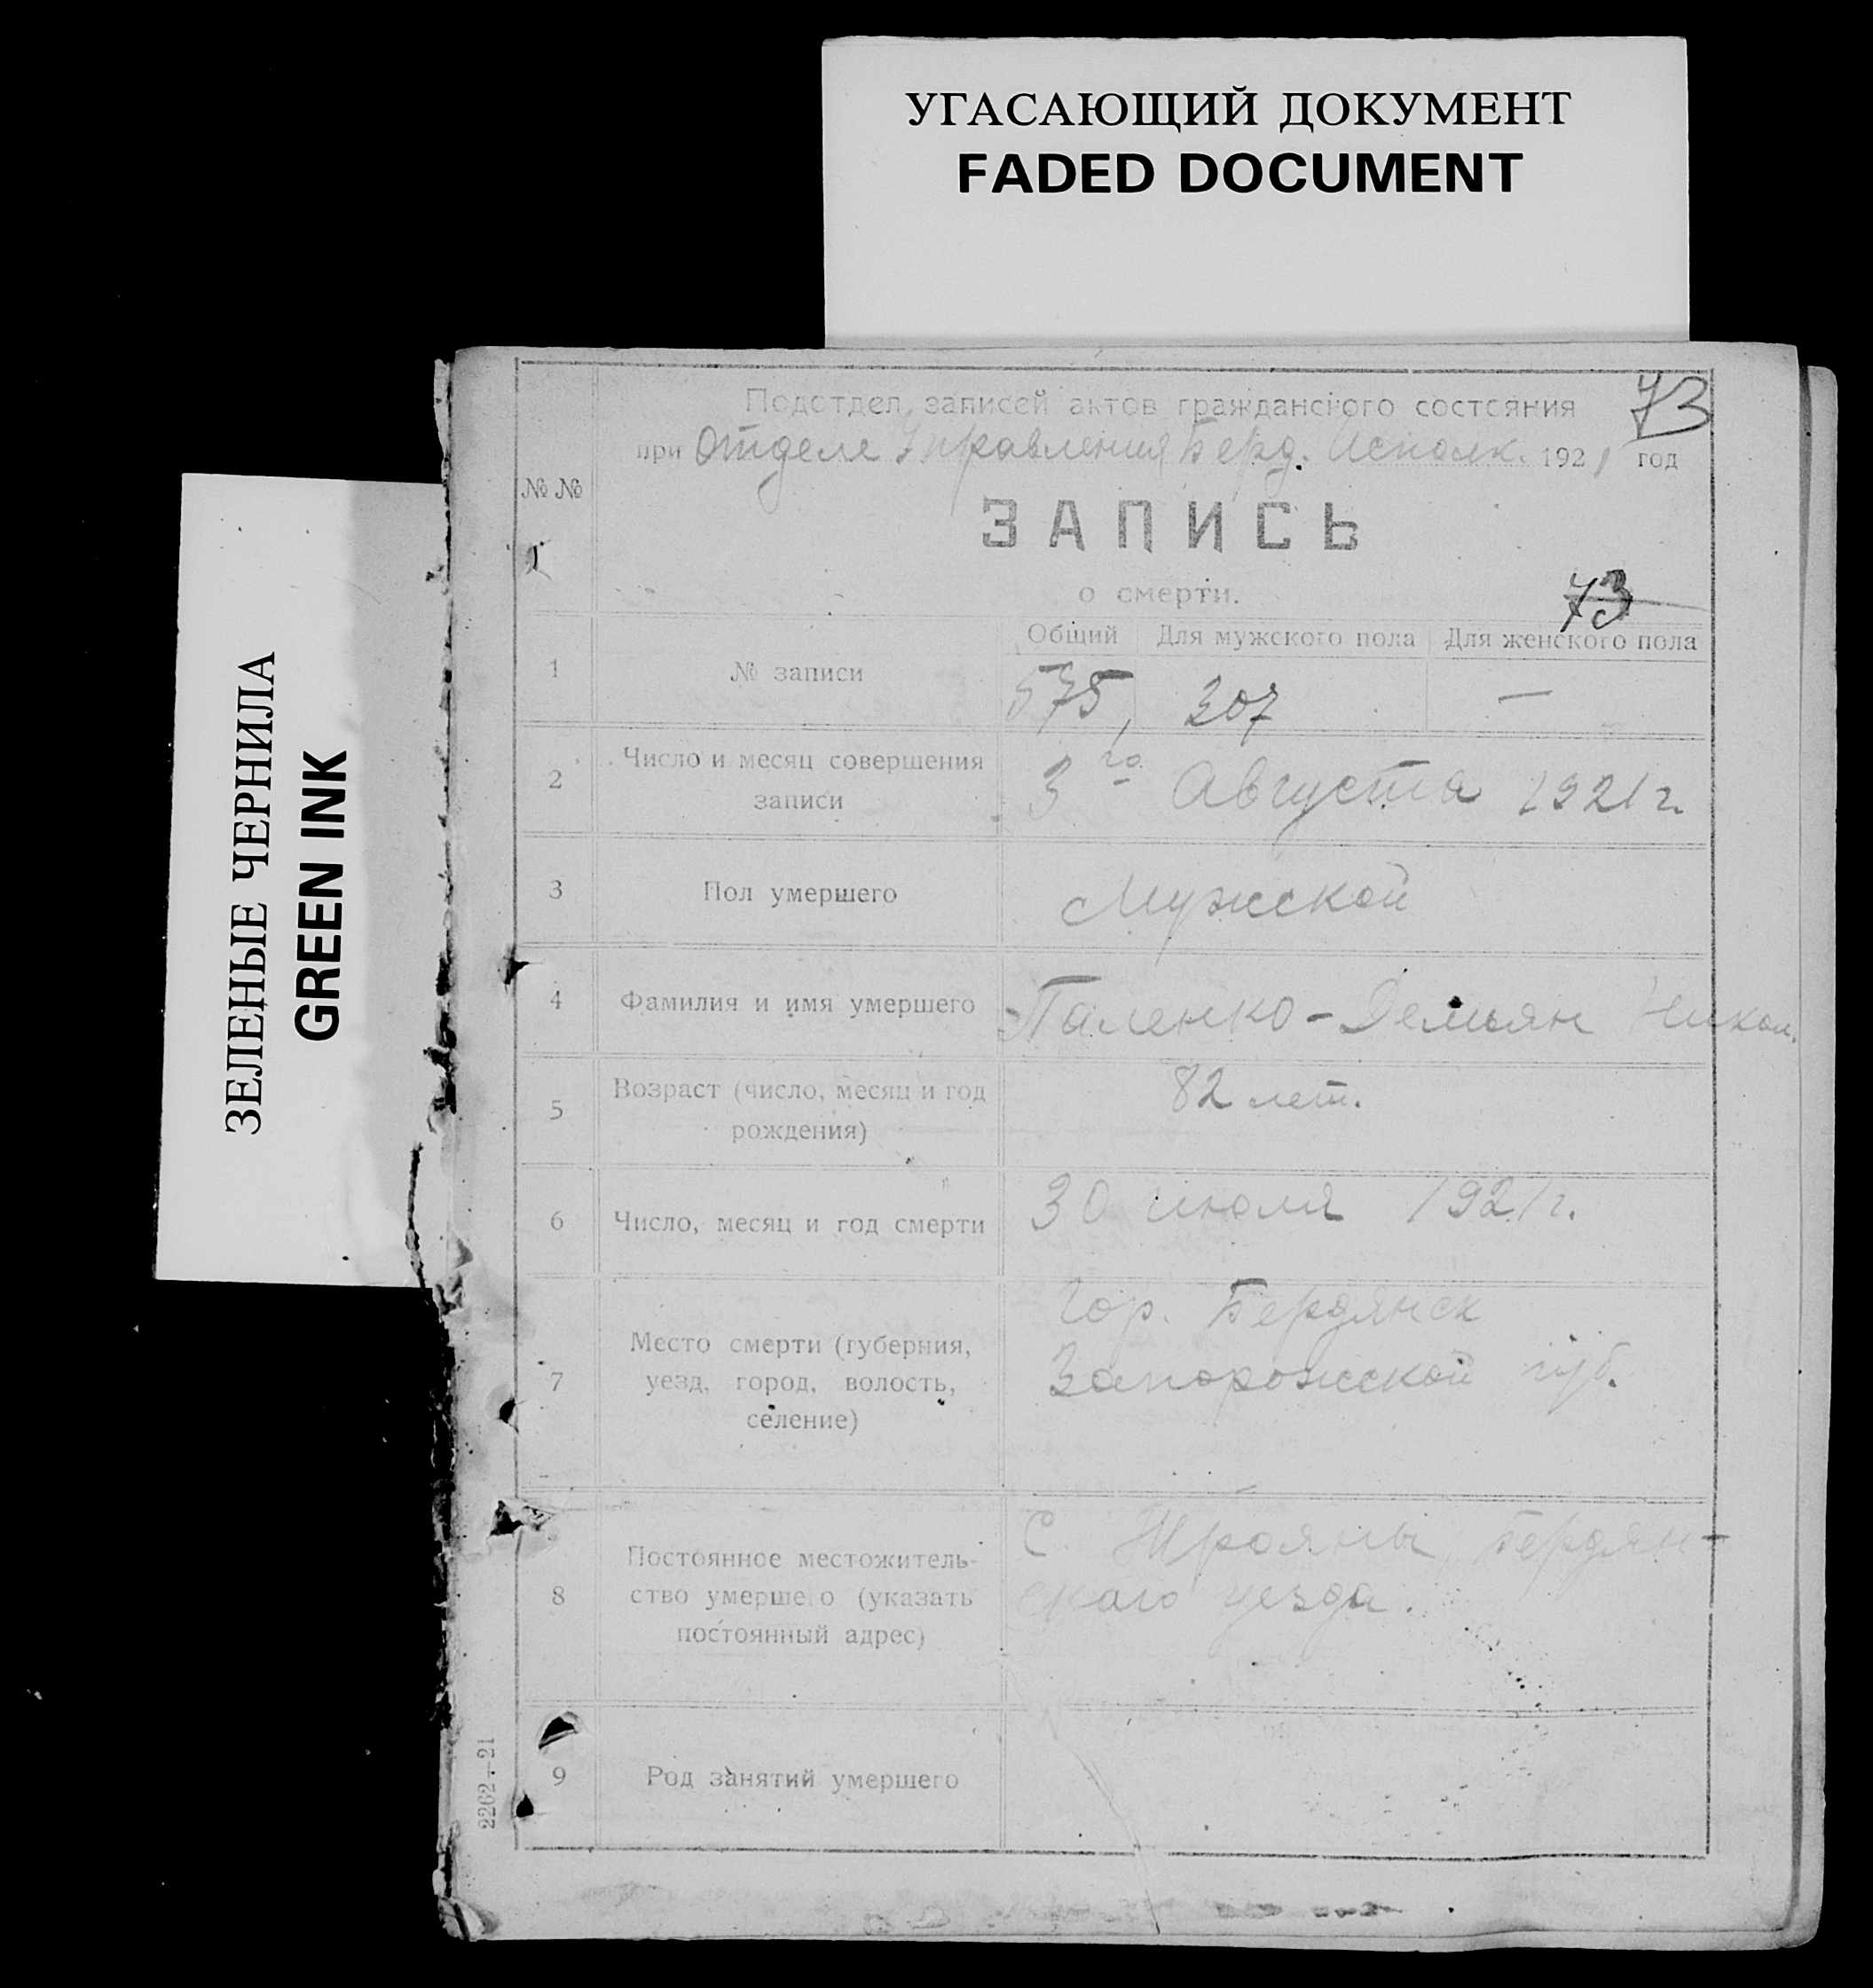 УГАСАЮЩИЙ ДОКУМЕНТ
FADED DOCUMENT
ЗЕЛЕНЫЕ ЧЕРНИЛА
GREEN INK
73
Подотдел записей актов гражданского состояния
при Отделе Управления Берд. Исполк. 1921 год
№ №
ЗАПИСЬ
о смерти.
73
Общий Для мужского пола Для женского пола
1 № записи 575, 307 —
2 Число и месяц совершения
записи
3го Августа 1921 г.
3 Пол умершего Мужской
4 Фамилия и имя умершего Паленко - Демьян Никол.
5 Возраст (число, месяц и год
рождения)
82 лет.
6 Число, месяц и год смерти 30 июля 1921 г.
7 Место смерти (губерния,
уезд, город, волость,
селение)
Гор. Бердянск
Запорожской губ.
8 Постоянное местожитель-
ство умерше о (указать
постоянный адрес)
С. Трояны, Бердян-
скаго уезда.
9 Род занятий умершего
2262—21